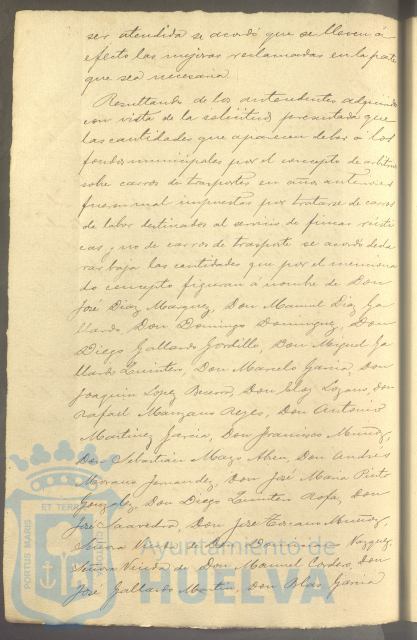 ser atendida se acordó que se lleven á
efecto las mejoras reclamadas en la parte
que sea necesaria.
Resultando de los antecedentes adquiridos
con vista de la solicitud presentada que
las cantidades que aparecen deber á los
fondos municipales por el concepto de arbitrios
sobre carros de trasportes en años anteriores
fueron mal impuestos por tratarse de carros
de labor destinados al servicio de fincas rústi
cas, y no de carros de trasporte se acordó decla
rar baja las cantidades que por el menciona
do concepto figuran á nombre de Don
José Díaz Marquez, Don Manuel Díaz Ga
llardo, Don Domingo Dominguez, Don
Diego Gallardo Gordillo, Don Miguel Ga
llardo Quintero, Don Marcelo Garcia, Don
Joaquin Lopez Becerra, Don Blas Lozano, Don
Rafael Manzano Reyes, Don Antonio
Martinez Garcia, Don Francisco Muñoz,
Don Sebastián Mazo Abreu, Don Andrés
Moreno Fernandez, Don José Maria Pinto
Gonzalez, Don Diego Quintero Rofa, Don
José Saavedra, Don José Toscano Muñoz,
Señora Viuda de Don Domingo Vazquez,
Señora Viuda de Don Manuel Cordero, Don
José Gallardo Martin, Don Blas Garcia
PORTUS MARIS ET TERRAE CUSTODIA
Ayuntamiento de
HUELVA